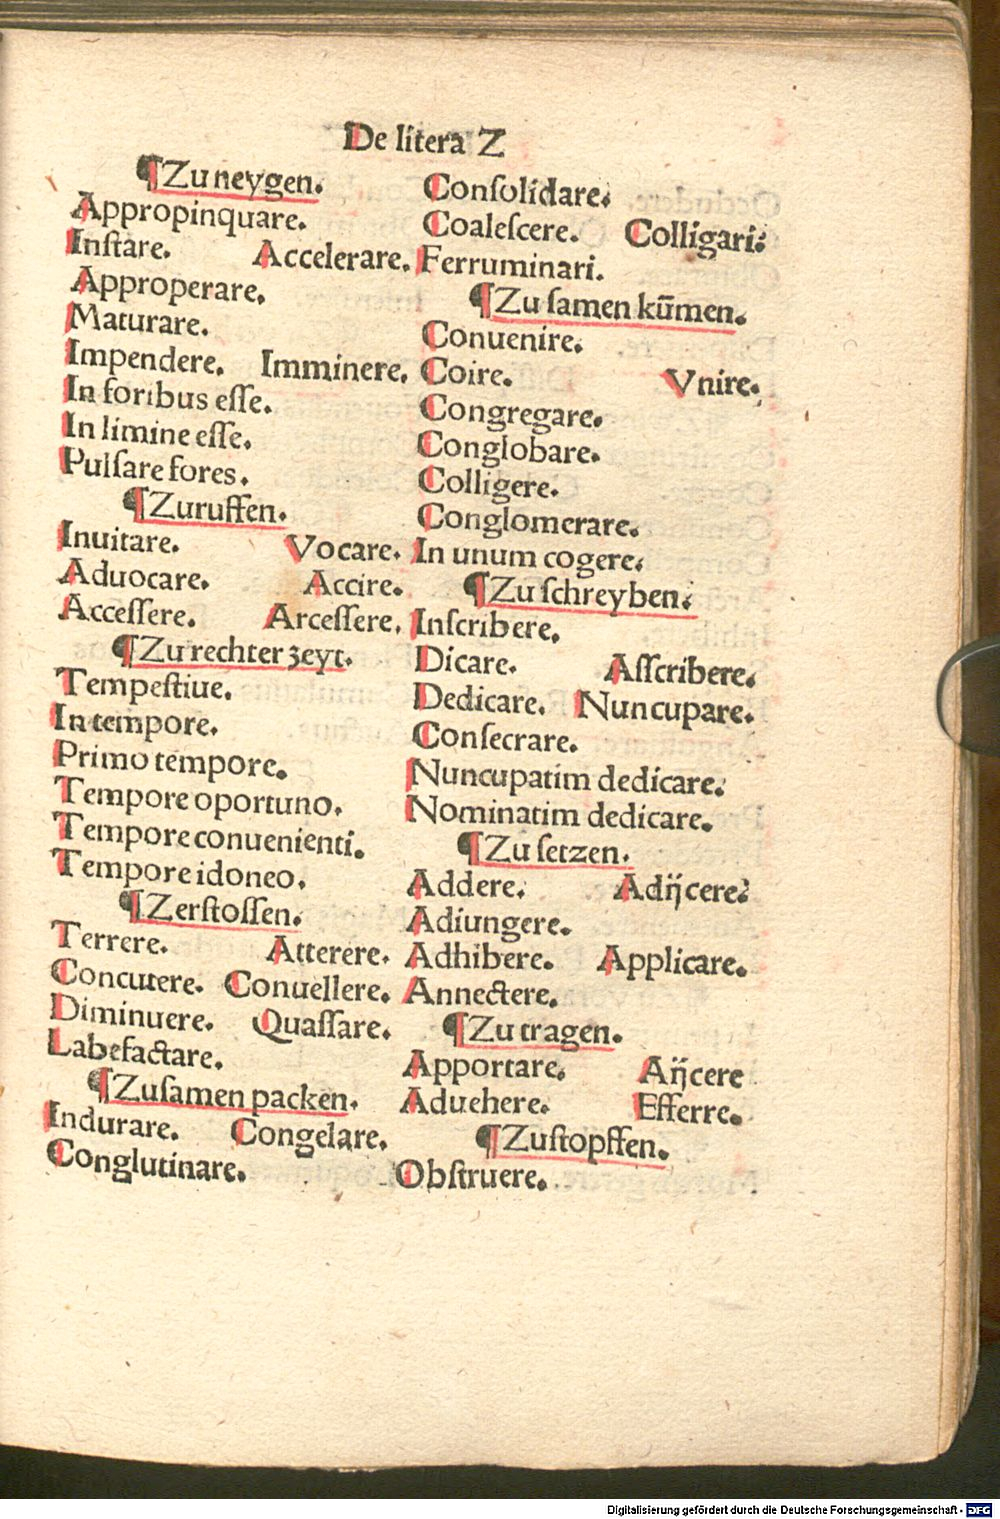 De litera Z
¶Zu neygen.
Appropinquare.
Instare. Accelerare.
Approperare.
Maturare.
Impendere. Imminere.
In foribus esse.
In limine esse.
Pulsare fores.
¶Zuruffen.
Inuitare. Vocare.
Aduocare. Accire.
Accessere. Arcessere.
¶Zu rechter zeyt.
Tempestiue.
In tempore.
Primo tempore.
Tempore oportuno.
Tempore conuenienti.
Tempore idoneo.
¶Zerstossen.
Terrere. Atterere.
Concutere. Conuellere.
Diminuere. Quassare.
Labefactare.
¶Zusamen packen.
Indurare. Congelare.
Conglutinare.
Consolidare.
Coalescere. Colligari.
Ferruminari.
¶Zu samen kūmen.
Conuenire.
Coire. Vnire.
Congregare.
Conglobare.
Colligere.
Conglomerare.
In unum cogere.
¶Zu schreyben.
Inscribere.
Dicare. Asscribere.
Dedicare. Nuncupare.
Consecrare.
Nuncupatim dedicare.
Nominatim dedicare.
¶Zu setzen.
Addere. Adijcere.
Adiungere.
Adhibere. Applicare.
Annectere.
¶Zu tragen.
Apportare. Aijcere
Aduehere. Efferre.
¶Zustopffen.
Obstruere.
Digitalisierung gefördert durch die Deutsche Forschungsgemeinschaft - DFG